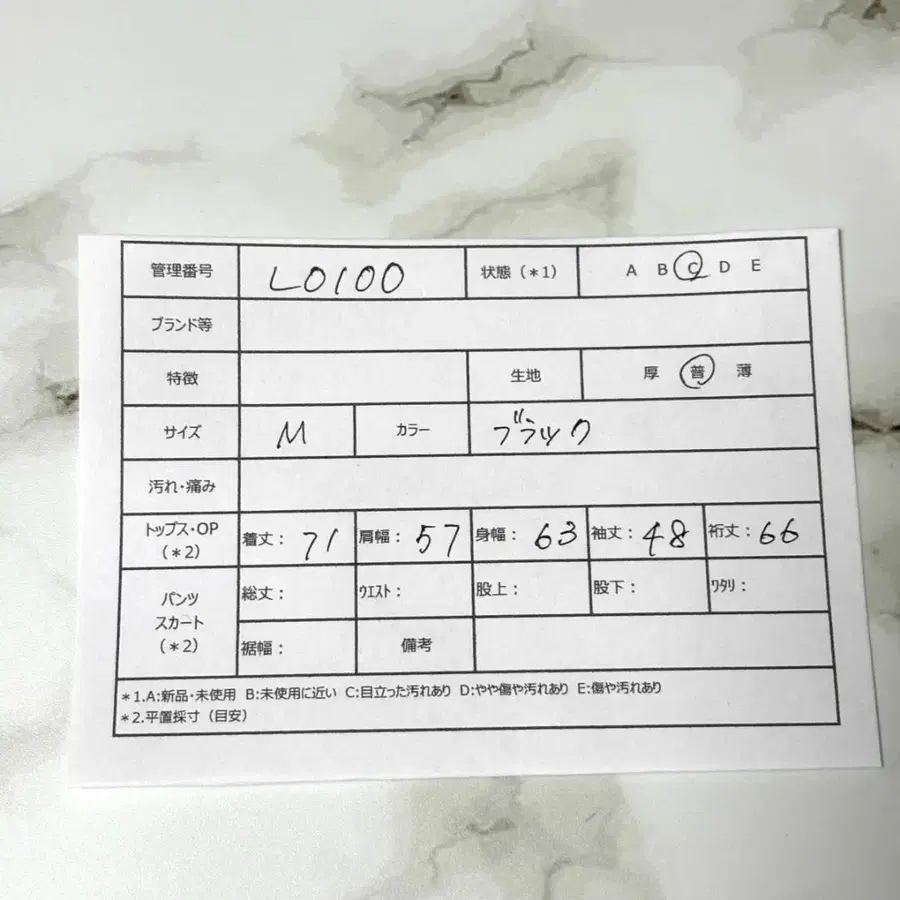 管理番号 L0100 状態(*1) A B C D E
ブランド等
特徴 生地 厚 普 薄
サイズ M カラー ブラック
汚れ・痛み
トップス・OP (*2) 着丈: 71 肩幅: 57 身幅: 63 袖丈: 48 裄丈: 66
パンツ スカート (*2) 総丈: ウエスト: 股上: 股下: ワタリ:
裾幅: 備考
*1.A:新品・未使用 B:未使用に近い C:目立った汚れあり D:やや傷や汚れあり E:傷や汚れあり
*2.平置採寸(目安)